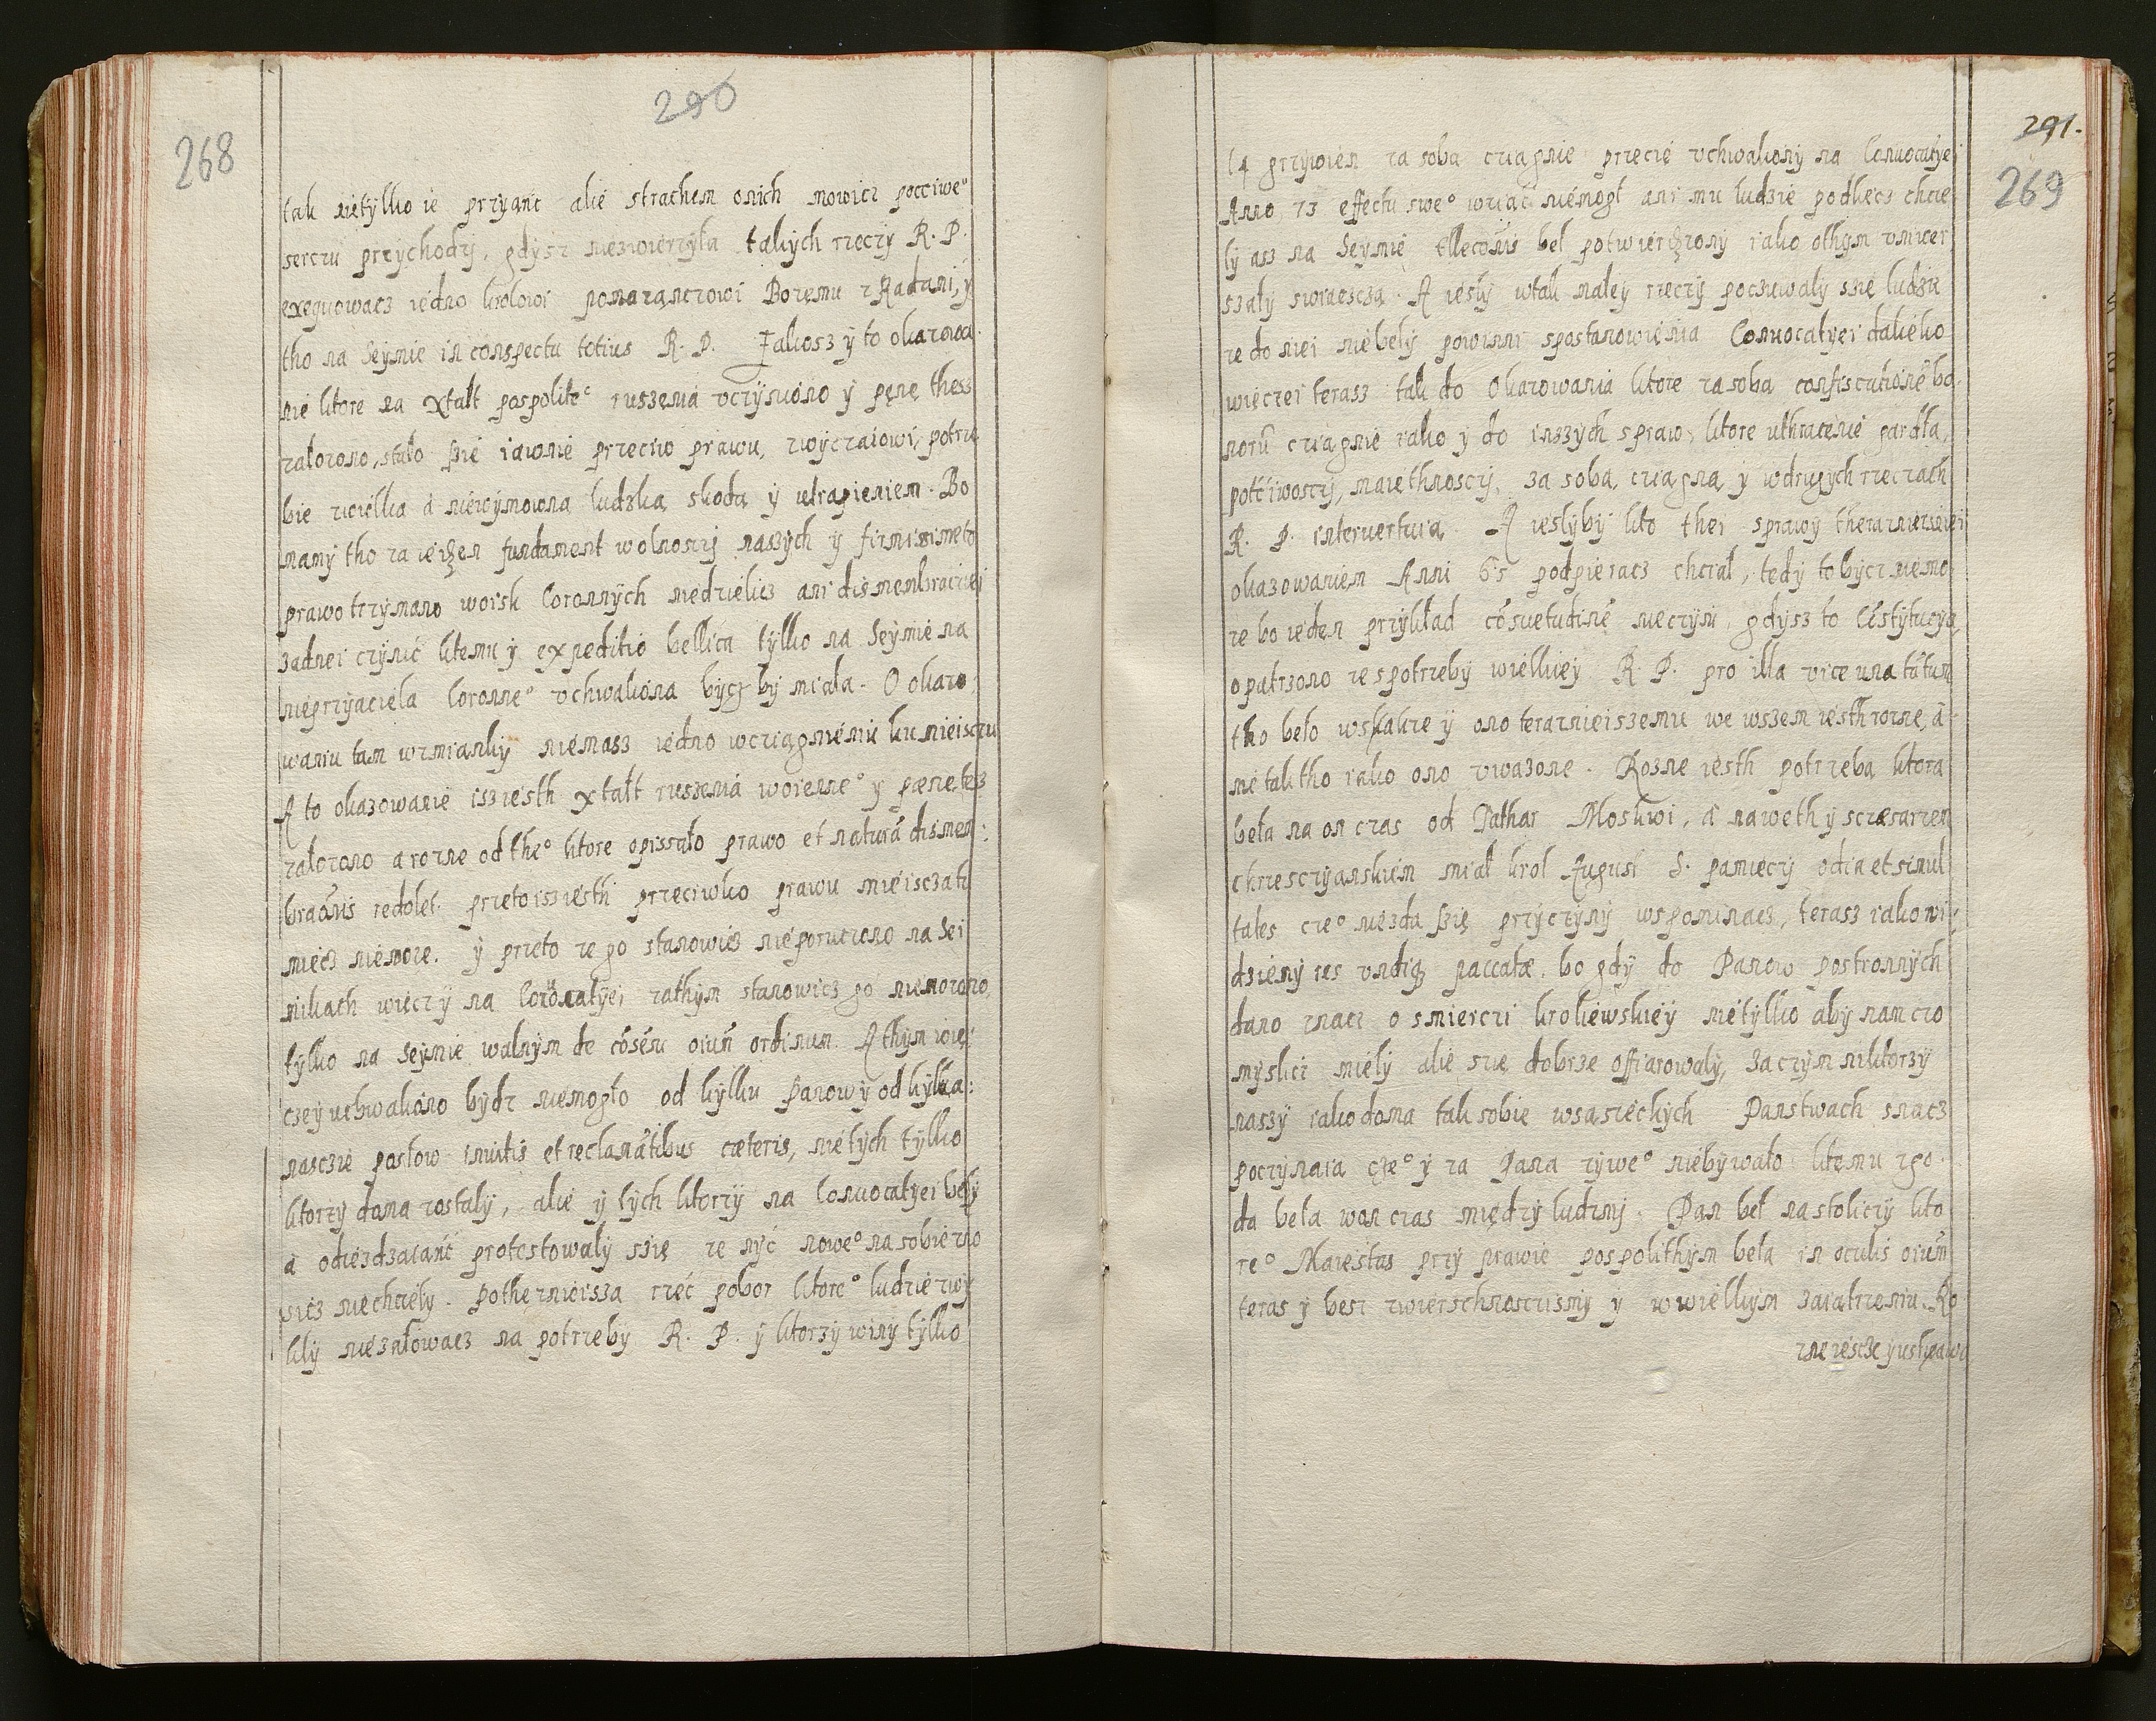 290
268
tak nietylko ie przyąnć alie strachem onich mowicz poczciwe°
serczu przychodzi, gdysz niezwierzyła takiych rzeczy R. P.
exequowacz iedno krolowi pomazanczowi Bożemu z Radami, ÿ
tho na Seÿmie in conspectu totius R. P. Jakosz ÿ to okazowa
nie ktore na xtałt pospolite° ruszenia vczÿniono ÿ pęnę thesz
założono, stało szie iawnie przeciw prawu, zwÿczaiowi, potrze
bie zwielka á niewÿmowna ludzka skoda ÿ vtrapieniem. Bo
mamÿ tho za ieden fundament wolnoscÿ naszÿch ÿ firmissime to
prawo trzÿmano woisk Coronnÿch niedzielicz ani dismembraciei
zadnei czÿnić ktemu ÿ expeditio bellica tÿlko na Seÿmie na
nieprzÿaciela Coronne° vchwaliona bÿcz bÿ miała. O okazo
waniu tam wzmiankÿ niemasz iedno wcziągnienie ku mieisczu
A to okazowanie isz iesth xtałt ruszenia woienne° ÿ pænę tesz
założono a rozne od the° ktore opissało prawo et naturā dismem:
braōnis redolet przeto isz iesth przeciwko prawu mieiscza tu
miecz niemoze. ÿ przeto ze go stanowicz nieporuczono na Sei
mikach wieczÿ na Coronatÿei zathÿm stanowicz go niemozono,
tÿlko na Seÿmie walnÿm de cōsēsu oiuḿ ordinum. A thÿm wię:
czeÿ uchwaliono bÿdz niemogło od kÿlku Panow ÿ od kÿlka:
nasczie posłow inuitis et reclamātibus cæteris, nie tÿch tÿlko
ktorzÿ doma zostalÿ, alie ÿ tÿch ktorzÿ na Conuocatÿei bÿlÿ
á odiezdzaiąnć protestowalÿ szię ze nÿc nowe° na sobie zno
sicz niechcielÿ. Potherznieisza rzeć pobor ktore° ludzie zwÿ
klÿ niezałowacz na potrzebÿ R. P. ÿ ktorzÿ winÿ tÿlko
291.
269
14 grzÿwien za soba cziągnie przecie vchwalionÿ na Conuocatÿei
Anno 73 effectu swe° wziąć niemogł ani mu ludzie podliecz chcie
lÿ asz na Seÿmie Electōnis beł potwierdzonÿ iako othÿm vniwer
szałÿ swiadcza. A ieslÿ wtak małeÿ rzeczÿ poczuwalÿ szię ludzie
ze do niei niebelÿ powinni spostanowienia Conuocatÿei dalieko
więczei terasz tak do Okazowania ktore za soba confiscationē bo
norū cziągnie iako ÿ do inszÿch spraw, ktore uthracenie gardła,
potciwosczÿ, maiethnosczÿ, za soba, cziągną, ÿ wdrugÿch rzeczach
R. P. interuertuią. A ieslÿbÿ kto thei sprawÿ therazniejszei
okazowaniem Anni 65 podpieracz chciał, tedÿ to bÿcz niemo
ze bo ieden przÿkład cōsuetudinē nieczÿni, gdÿsz to Cōstÿtucÿą
opatrzono zespotrzebÿ wielkieÿ R. P. pro illa vice una tātum
tho beło wskakze ÿ ono terazniejszemu we wszem iesth rozne, á
nie tak tho iako ono vwazone. Rozne iesth potrzeba ktora
beła na on czas od Tathar Moskwi, á naweth ÿ sczesarzem
chrzesczÿanskiem miał krol August S. pamieczÿ odia et simul
tates cze° niezda szię przÿczÿnÿ wspominacz, terasz iako wi:
dziemÿ res vndiq paccatæ. bo gdÿ do Panow postronnÿch
dano znacz o smierczi kroliewskieÿ nietÿlko abÿ nam czo
mÿslicz mielÿ alie szię dobrze offiarowalÿ, Zaczÿm niktorzÿ
naszÿ iako doma tak sobie wsąsieckich Panstwach snacz
poczÿnaią cze° ÿ za Pana zÿwe° niebÿwało ktemu zgo
da beła won czas miedzÿ ludzmi. Pan beł nastoliczÿ kto
re° Maiestas przÿ prawie pospolithÿm beła in oculis oiuḿ
teras ÿ besz zwierschnosczismÿ ÿ wwielkÿm zaiatrzeniu. Ro
zne ieścze ÿ usthawi